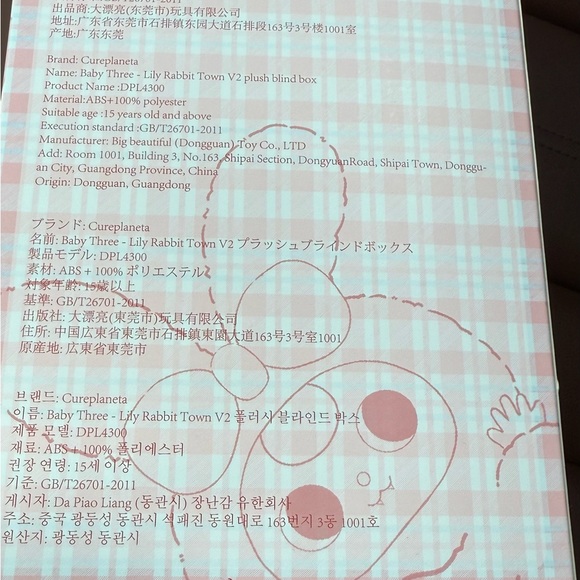 出品商:大漂亮(东莞市)玩具有限公司
地址:广东省东莞市石排镇东园大道石排段163号3号楼1001室
产地:广东东莞
Brand: Cureplaneta
Name: Baby Three - Lily Rabbit Town V2 plush blind box
Product Name :DPL4300
Material:ABS+100% polyester
Suitable age :15 years old and above
Execution standard :GB/T26701-2011
Manufacturer: Big beautiful (Dongguan) Toy Co., LTD
Add: Room 1001, Building 3, No.163, Shipai Section, DongyuanRoad, Shipai Town, Donggu-
an City, Guangdong Province, China
Origin: Dongguan, Guangdong
ブランド: Cureplaneta
名前: Baby Three - Lily Rabbit Town V2 プラッシュブラインドボックス
製品モデル: DPL4300
素材: ABS + 100% ポリエステル
対象年齢: 15歳以上
基準: GB/T26701-2011
出版社: 大漂亮(東莞市)玩具有限公司
住所: 中国広東省東莞市石排鎮東園大道163号3号室1001
原産地: 広東省東莞市
브랜드: Cureplaneta
이름: Baby Three - Lily Rabbit Town V2 풀러시 블라인드 박스
제품 모델: DPL4300
재료: ABS + 100% 폴리에스터
권장 연령: 15세 이상
기준: GB/T26701-2011
게시자: Da Piao Liang (동관시) 장난감 유한회사
주소: 중국 광둥성 동관시 석패진 동원대로 163번지 3동 1001호
원산지: 광둥성 동관시